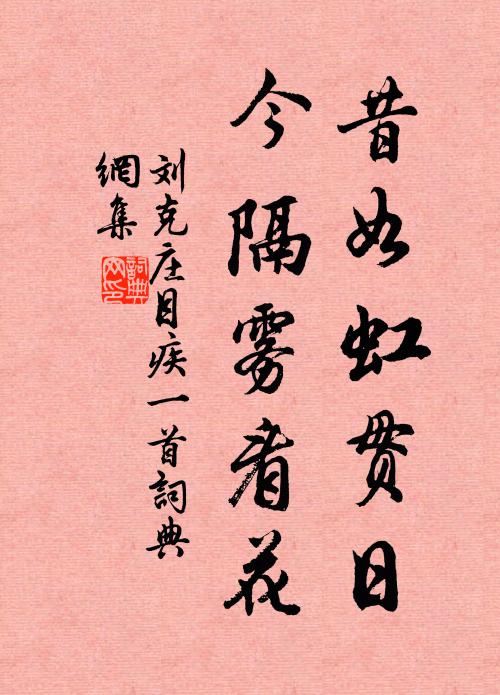 昔如虹贯日
今隔雾看花
刘克庄目疾一首詞典
網集
詞典
网印